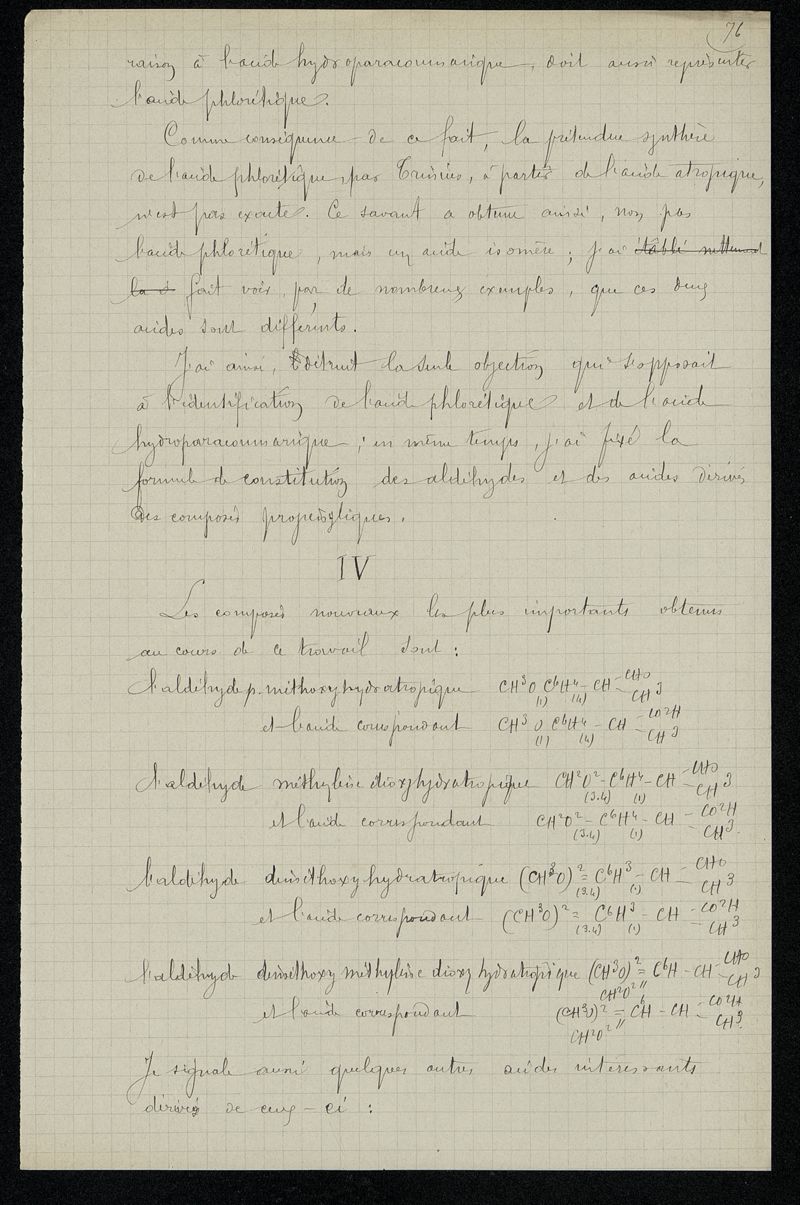 76
raison à l'acide hydroparacoumarique, doit aussi représenter
l'acide phlorétique.
Comme conséquence de ce fait, la prétendue synthèse
de l'acide phlorétique, par Trinius, à partir de l'acide atropique,
n'est pas exacte. Ce savant a obtenu ainsi, non pas
l'acide phlorétique, mais un acide isomère ; j'ai établi nettement
la s fait voir, par de nombreux exemples, que ces deux
acides sont différents.
J'ai ainsi, détruit la seule objection qui s'opposait
à l'identification de l'acide phlorétique et de l'acide
hydroparacoumarique ; en même temps, j'ai fixé la
formule de constitution des aldéhydes et des acides dérivés
des composés propényliques.
IV
Les composés nouveaux les plus importants obtenus
au cours de ce travail sont :
L'aldéhyde p. méthoxyhydratropique CH³O C⁶H⁴ – CH – CHO
(1) (4) – CH³
et l'acide correspondant CH³O C⁶H⁴ – CH – CO²H
(1) (4) – CH³
L'aldéhyde méthylène dioxyhydratropique CH²O² – C⁶H⁴ – CH – CHO
(3.4) (1) – CH³
et l'acide correspondant CH²O² – C⁶H⁴ – CH – CO²H
(3.4) (1) – CH³
L'aldéhyde diméthoxyhydratropique (CH³O)² = C⁶H³ – CH – CHO
(3.4) (1) – CH³
et l'acide correspondant (CH³O)² = C⁶H³ – CH – CO²H
(3.4) (1) – CH³
L'aldéhyde diméthoxyméthylène dioxyhydratropique (CH³O)² = C⁶H – CH – CHO
CH²O² // – CH³
et l'acide correspondant (CH³O)² = C⁶H – CH – CO²H
CH²O² // CH³
Je signale aussi quelques autres acides intéressants
dérivés de ceux-ci :